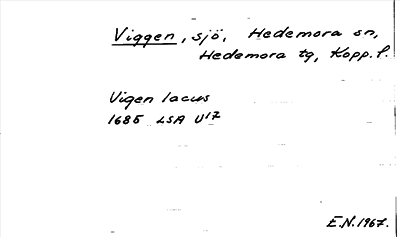 Viggen, sjö, Hedemora sn,
Hedemora tg, Kopp. l.
Vigen lacus
1685 LSA U17
E.N. 1967.